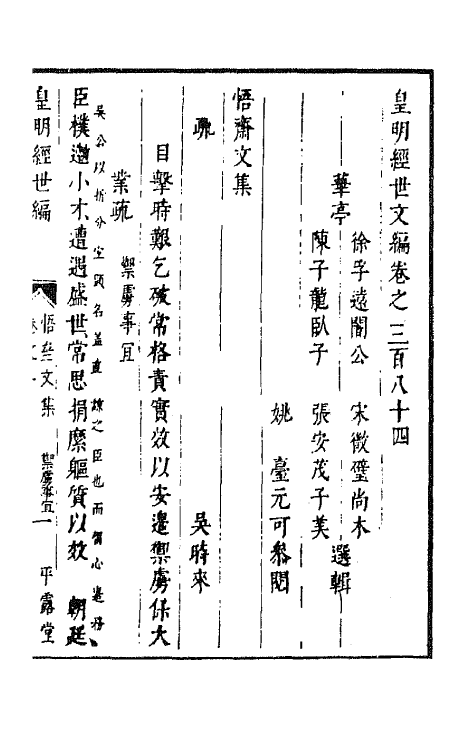 皇明經世文編卷之三百八十四
華亭
徐孚遠闇公　宋徵璧尚木
陳子龍臥子　張安茂子美　選輯
姚　臺元可參閱
悟齋文集
疏　　吳時來
目擊時艱乞破常格責實效以安邊禦虜保大
業疏　禦虜事宜
吳公以折分宜項名蓋直諫之臣也而留心邊務
臣樸遬小才遭遇盛世常思捐糜軀質以效　朝廷
皇明經世編　悟齋文集　禦虜事宜　一　平露堂